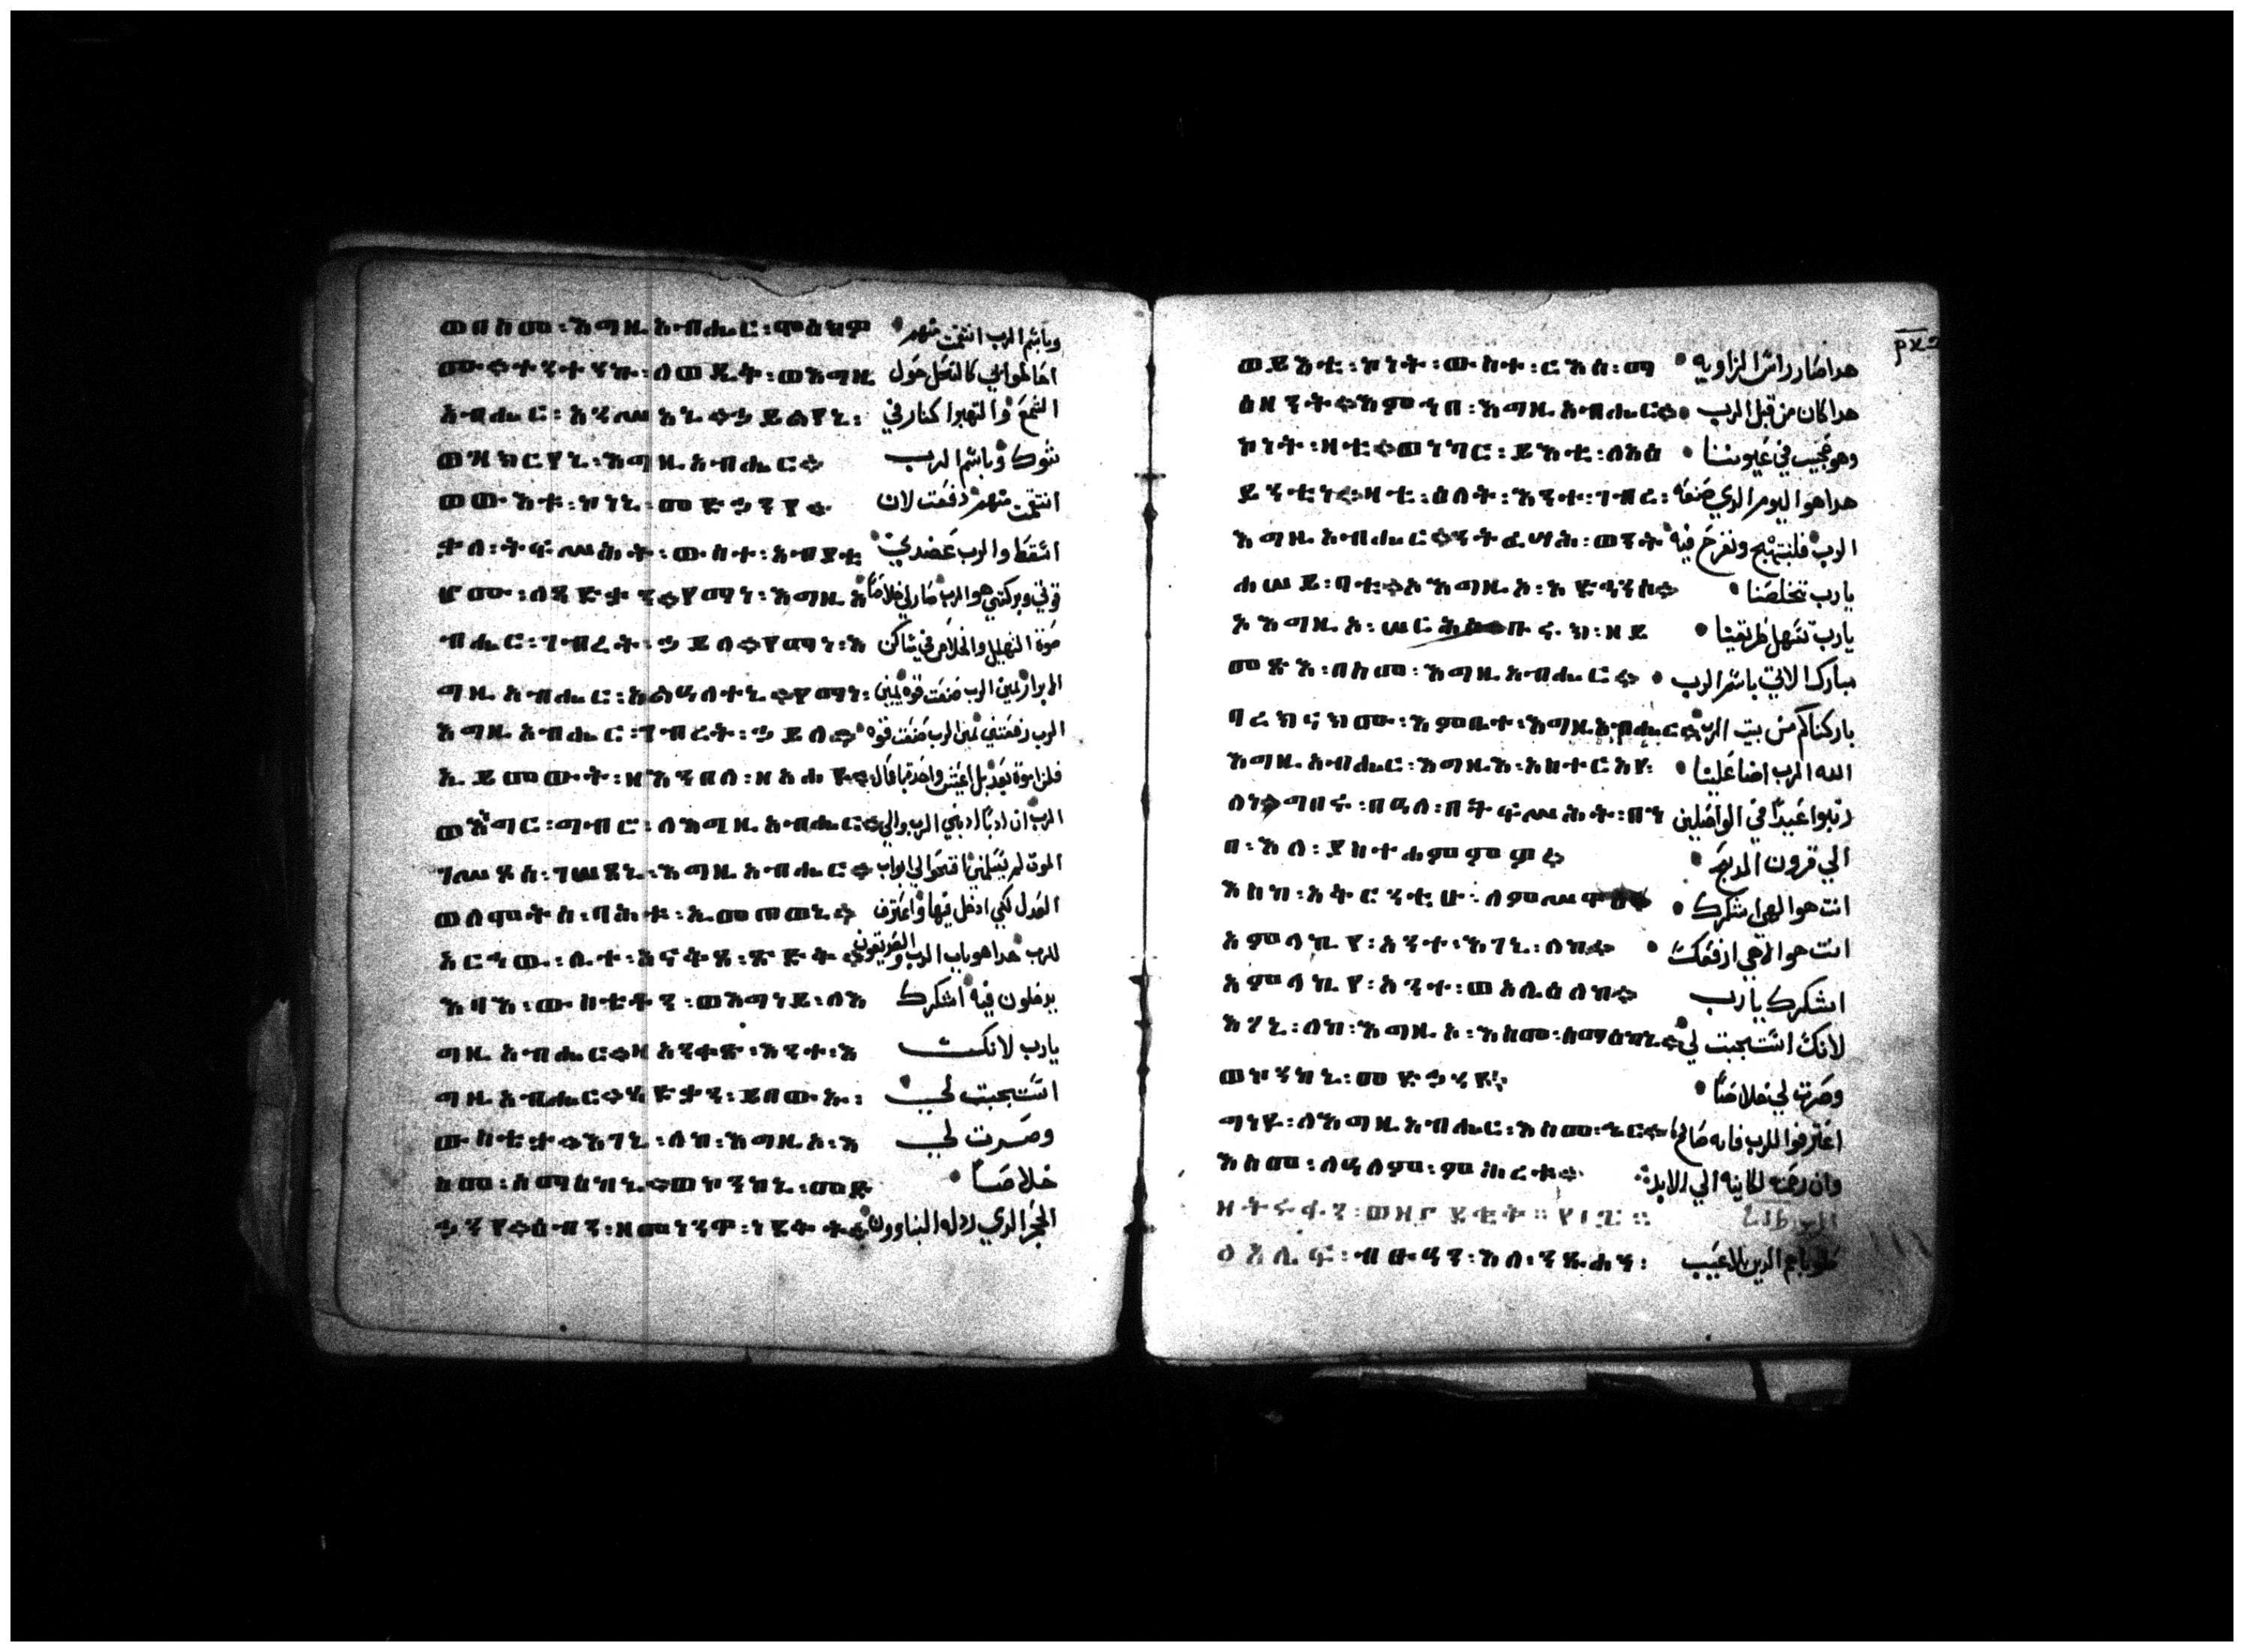 ወበስመ፡እግዚአብሔር፡ሞዕክዎ وباسم الرب انتقمت منهم
ሙ።ተንተንኩ፡ለወዲቅ፡ወእግዚ احاطوا بي كالنحل حول
አብሔር፡አንሥአኒ።ኃይልየኒ፡ الشمع والتهبوا كنار في
ወዝክርየኒ፡እግዚአብሔር። شوك وباسم الرب
ወውእቱ፡ኮነኒ፡መድኃንየ። انتقمت منهم دفعت لان
ቃለ፡ትፍሥሕት፡ውስተ፡አብያቲ اسقط والرب عضدني
ሆሙ፡ለጻድቃን።የማነ፡እግዚአ قوتي وبركتي هو الرب صار لي خلاصا
ብሔር፡ገብረት፡ኃይለ።የማነ፡እ صوة التهليل والخلاص في مساكن
ግዚአብሔር፡አልዓለተኒ።የማነ፡ الابرار يمين الرب صنعت قوه يمين
እግዚአብሔር፡ገብረት፡ኃይለ። الرب رفعتني يمين الرب صنعت قوه
ኢይመውት፡ዘእንበለ፡ዘአሐዩ። فلن اموة بعد بل اعيش واحدث باعمال
ወእነግር፡ግብሮ፡ለእግዚአብሔር። الرب ان ادبا ادبني الرب والي
ገሥጾሰ፡ገሠጸኒ፡እግዚአብሔር። الموت لم يسلمني افتحوا لي ابواب
ወለሞትሰ፡ባሕቱ፡ኢመጠወኒ። العدل لكي ادخل فيها واعترف
አርኅዉ፡ሊተ፡አናቅጸ፡ጽድቅ። للرب هدا هو باب الرب والصديقون
እባእ፡ውስቴቶን፡ወእግነይ፡ለእ يدخلون فيه اشكرك
ግዚአብሔር።ዛአንቀጽ፡እንተ፡እ يارب لانك
ግዚአብሔር።ጻድቃን፡ይበውኡ፡ استجبت لي
ውስቴታ።እገኒ፡ለከ፡እግዚኦ፡እ وصرت لي
ስመ፡ሰማዕከኒ።ወኮንከኒ፡መድ خلاصا
ኃንየ።ዕብን፡ዘመነንዋ፡ነደቅት። الحجر الدي ردله البناوون
ወይእቲ፡ኮነት፡ውስተ፡ርእሰ፡ማ هدا صار راس الزاويه
ዕዘንት።እምኀበ፡እግዚአብሔር። هدا كان من قبل الرب
ኮነት፡ዛቲ።ወነክር፡ይእቲ፡ለአዕ وهو عجيب في عيوننا
ይንቲነ።ዛቲ፡ዕለት፡እንተ፡ገብረ፡ هدا هو اليوم الدي صنعه
እግዚአብሔር።ንትፌሣሕ፡ወንት الرب فلنبتهج ونفرح فيه
ሐሠይ፡ባቲ።ኦእግዚኦ፡አድኅንሶ። يارب تخلصنا
ኦእግዚኦ፡ሠርሖሶ።ቡሩክ፡ዘይ يارب تسهل طريقنا
መጽእ፡በስመ፡እግዚአብሔር። مبارك الاتي باسم الرب
ባረክናክሙ፡እምቤተ፡እግዚአብሔር። باركناكم من بيت الرب
እግዚአብሔር፡እግዚእ፡አስተርአየ፡ الله الرب اضا علينا
ለነ።ግበሩ፡በዓለ፡በትፍሥሕት፡በኀ رتبوا عيدا في الواصلين
በ፡እለ፡ያስተሐምምዎ። الي قرون المدبح
እስከ፡አቅርንቲሁ፡ለምሥዋዕ። انت هو الهي اشكرك
አምላኪየ፡አንተ፡እገኒ፡ለከ። انت هو الاهي ارفعك
አምላኪየ፡አንተ፡ወአሌዕለከ። اشكرك يارب
እገኒ፡ለከ፡እግዚኦ፡እስመ፡ሰማዕከኒ። لانك استجبت لي
ወኮንከኒ፡መድኃንየ። وصرت لي خلاصا
ግነዩ፡ለእግዚአብሔር፡እስመ፡ኄር። اعترفوا للرب فانه صالح
እስመ፡ለዓለም፡ምሕረቱ። وان رحمته كاينه الي الابد
ብፁዓን፡እለ፡ንጹሐን፡ طوباهم الدين بلا عيب